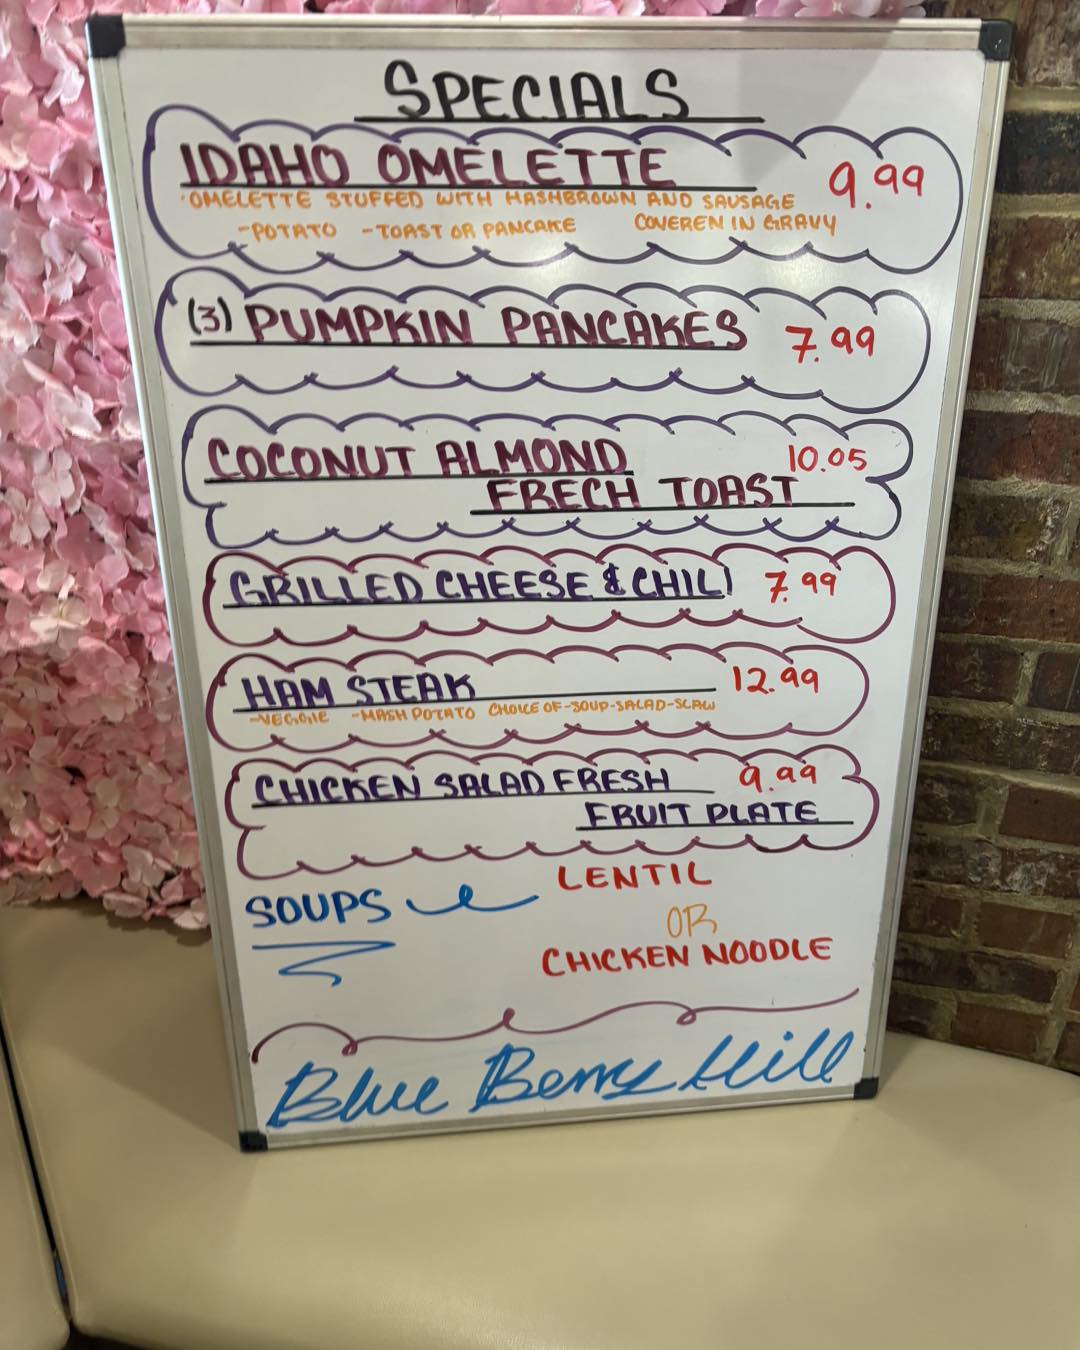 SPECIALS
IDAHO OMELETTE 9.99
·OMELETTE STUFFED WITH HASHBROWN AND SAUSAGE
-POTATO -TOAST OR PANCAKE COVEREN IN GRAVY
(3) PUMPKIN PANCAKES 7.99
COCONUT ALMOND 10.05
FRECH TOAST
GRILLED CHEESE & CHILI 7.99
HAM STEAK 12.99
-VEGGIE -MASH POTATO CHOICE OF-SOUP-SALAD-SLAW
CHICKEN SALAD FRESH 9.99
FRUIT PLATE
SOUPS LENTIL
OR
CHICKEN NOODLE
Blue Berry Hill